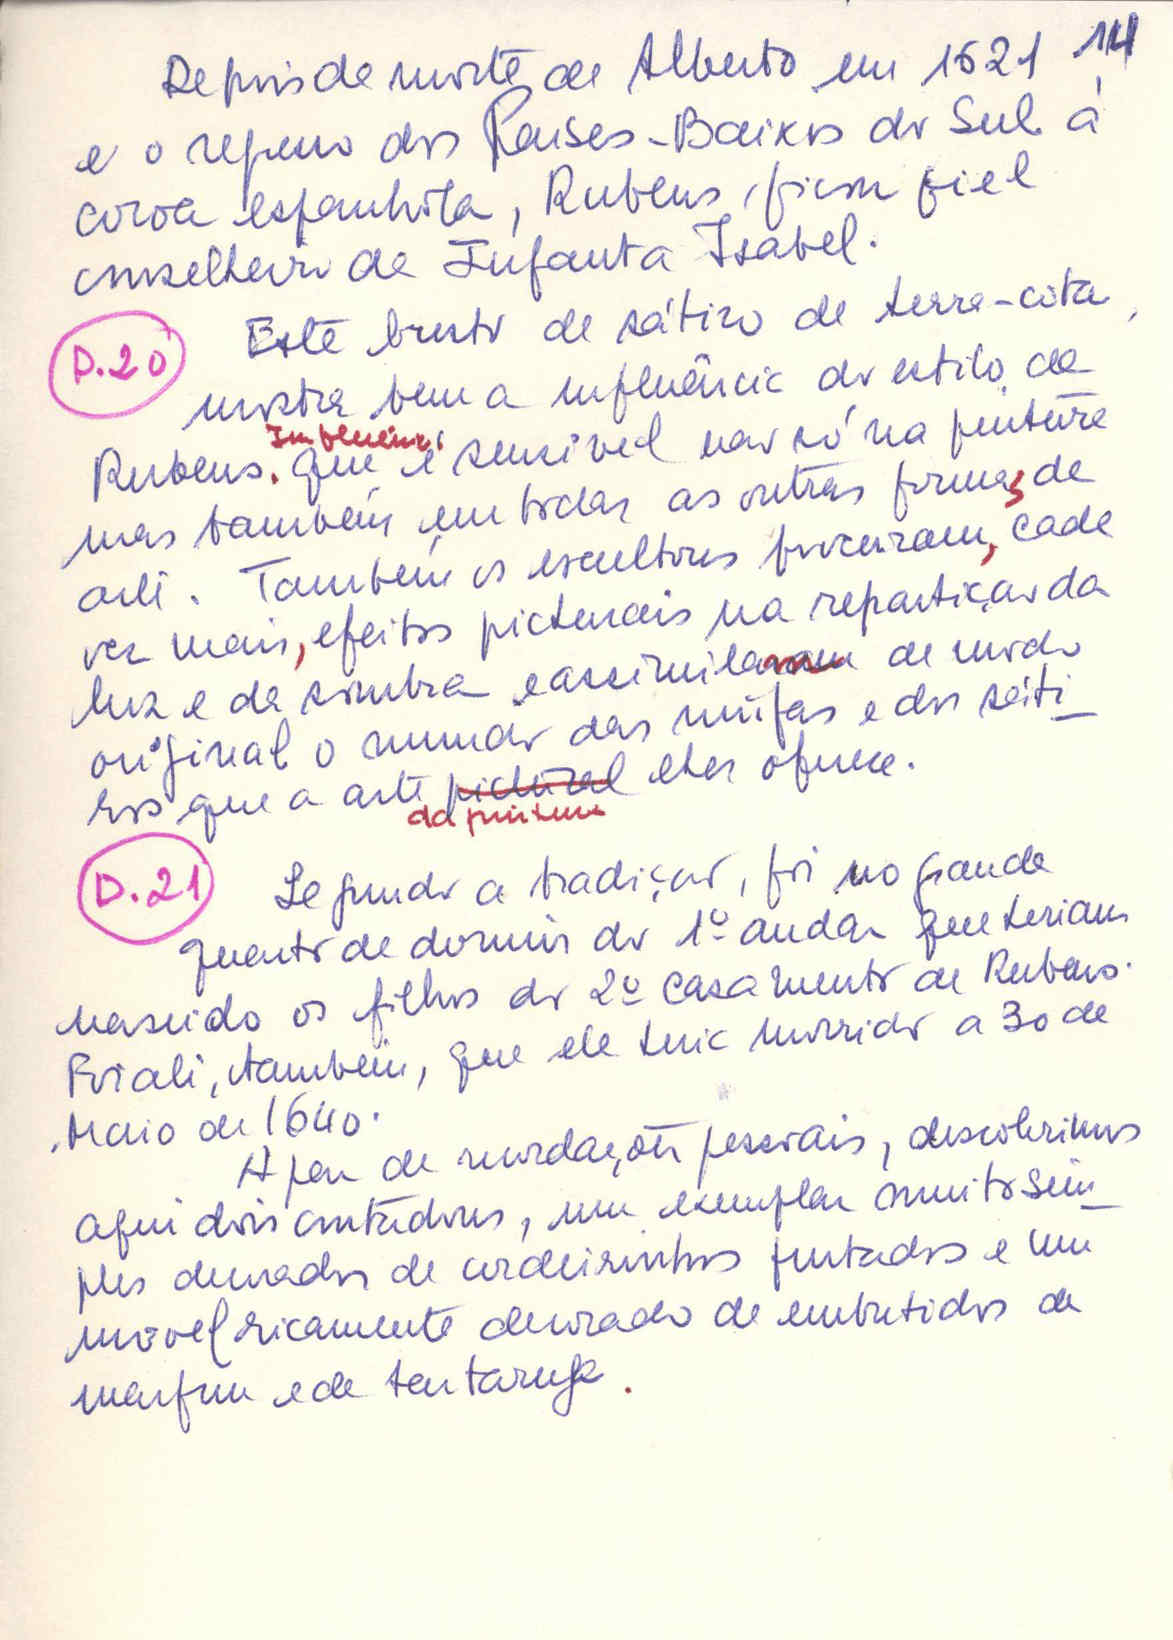 14
Depois da morte de Alberto em 1621
e o regresso dos Países-Baixos do Sul à
coroa espanhola, Rubens ficou fiel
conselheiro da Infanta Isabel.
D.20 Este busto de sátiro de terra-cota,
mostra bem a influência do estilo de
Influência
Rubens. que é sensível não só na pintura
mas também em todas as outras formas de
arte. Também os escultores procuram, cada
vez mais, efeitos picturais na repartição da
luz e da sombra e assimilaram de modo
original o mundo das ninfas e dos sáti-
ros que a arte pictural lhes oferece.
da pintura
D.21 Segundo a tradição, foi no grande
quarto de dormir do 1º andar que teriam
nascido os filhos do 2º casamento de Rubens.
Foi ali, também, que ele teria morrido a 30 de
Maio de 1640.
A par de recordações pessoais, descobrimos
aqui dois contadores, um exemplar muito sim-
ples decorado de cordeirinhos pintados e um
móvel ricamente decorado de embutidos de
marfim e de tartaruga.